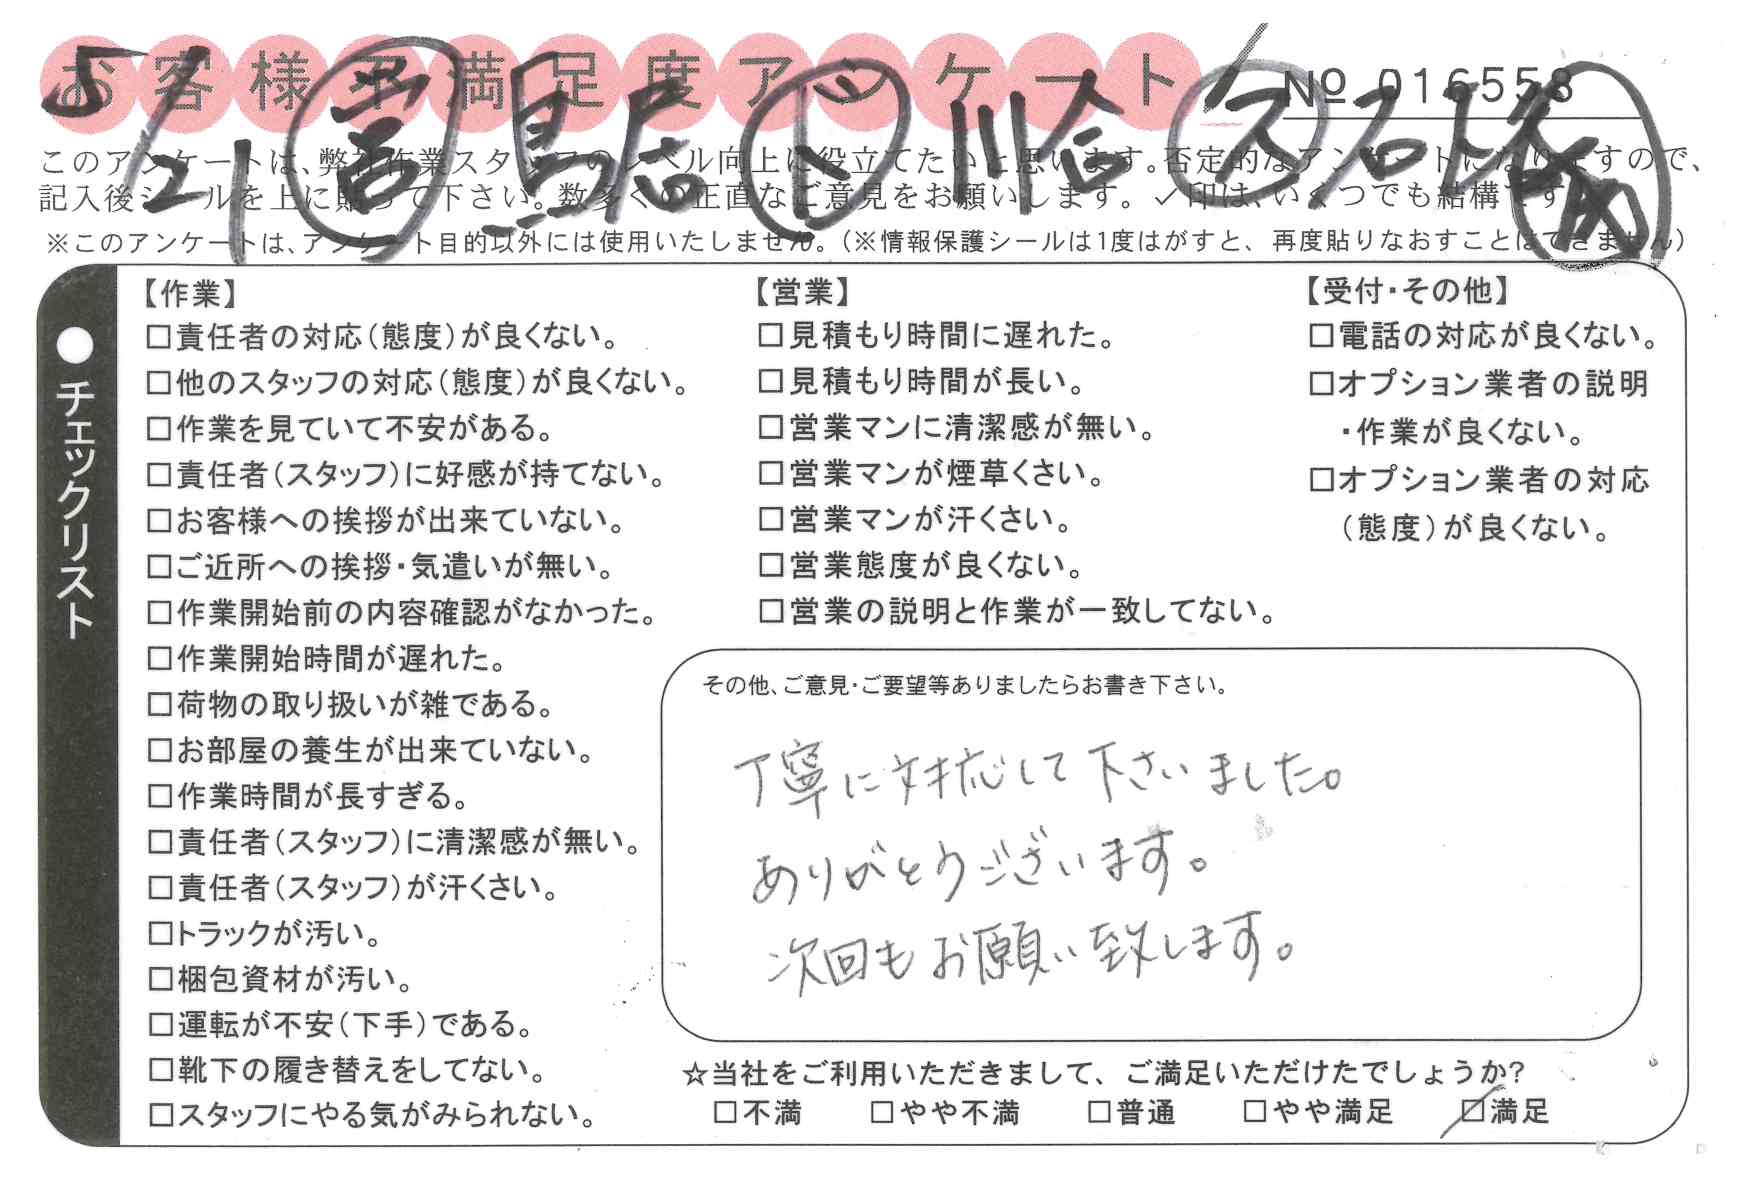 お客様不満足度アンケート
№ 016558
このアンケートは、弊社作業スタッフのレベル向上に役立てたいと思います。否定的なアンケートになりますので、
記入後シールを上に貼って下さい。数多くの正直なご意見をお願いします。✓印は、いくつでも結構です。
※このアンケートは、アンケート目的以外には使用いたしません。（※情報保護シールは1度はがすと、再度貼りなおすことはできません）
5/21 営 鳥居 ト 川合
チェックリスト
【作業】
□責任者の対応（態度）が良くない。
□他のスタッフの対応（態度）が良くない。
□作業を見ていて不安がある。
□責任者（スタッフ）に好感が持てない。
□お客様への挨拶が出来ていない。
□ご近所への挨拶・気遣いが無い。
□作業開始前の内容確認がなかった。
□作業開始時間が遅れた。
□荷物の取り扱いが雑である。
□お部屋の養生が出来ていない。
□作業時間が長すぎる。
□責任者（スタッフ）に清潔感が無い。
□責任者（スタッフ）が汗くさい。
□トラックが汚い。
□梱包資材が汚い。
□運転が不安（下手）である。
□靴下の履き替えをしてない。
□スタッフにやる気がみられない。
【営業】
□見積もり時間に遅れた。
□見積もり時間が長い。
□営業マンに清潔感が無い。
□営業マンが煙草くさい。
□営業マンが汗くさい。
□営業態度が良くない。
□営業の説明と作業が一致してない。
【受付・その他】
□電話の対応が良くない。
□オプション業者の説明
・作業が良くない。
□オプション業者の対応
（態度）が良くない。
その他、ご意見・ご要望等ありましたらお書き下さい。
丁寧に対応して下さいました。
ありがとうございます。
次回もお願い致します。
☆当社をご利用いただきまして、ご満足いただけたでしょうか?
□不満 □やや不満 □普通 □やや満足 ☑満足